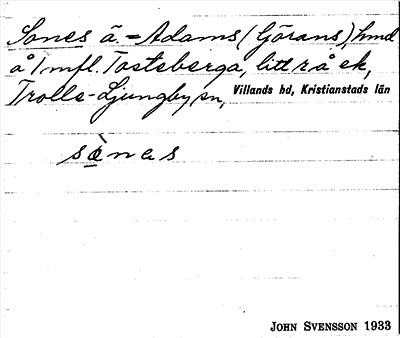 Sones ä. = Adams (Görans), hmd
å 1 mfl. Tosteberga, litt r å ek,
Trolle-Ljungby sn, Villands hd, Kristianstads län
sònes
JOHN SVENSSON 1933